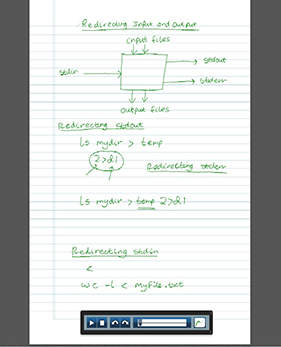 Redirecting Input and Output
input files
stdin
stdout
stderr
output files
Redirecting stdout
ls mydir > temp
2>&1
Redirecting stderr
ls mydir > temp 2>&1
Redirecting stdin
<
wc -l < myfile.txt